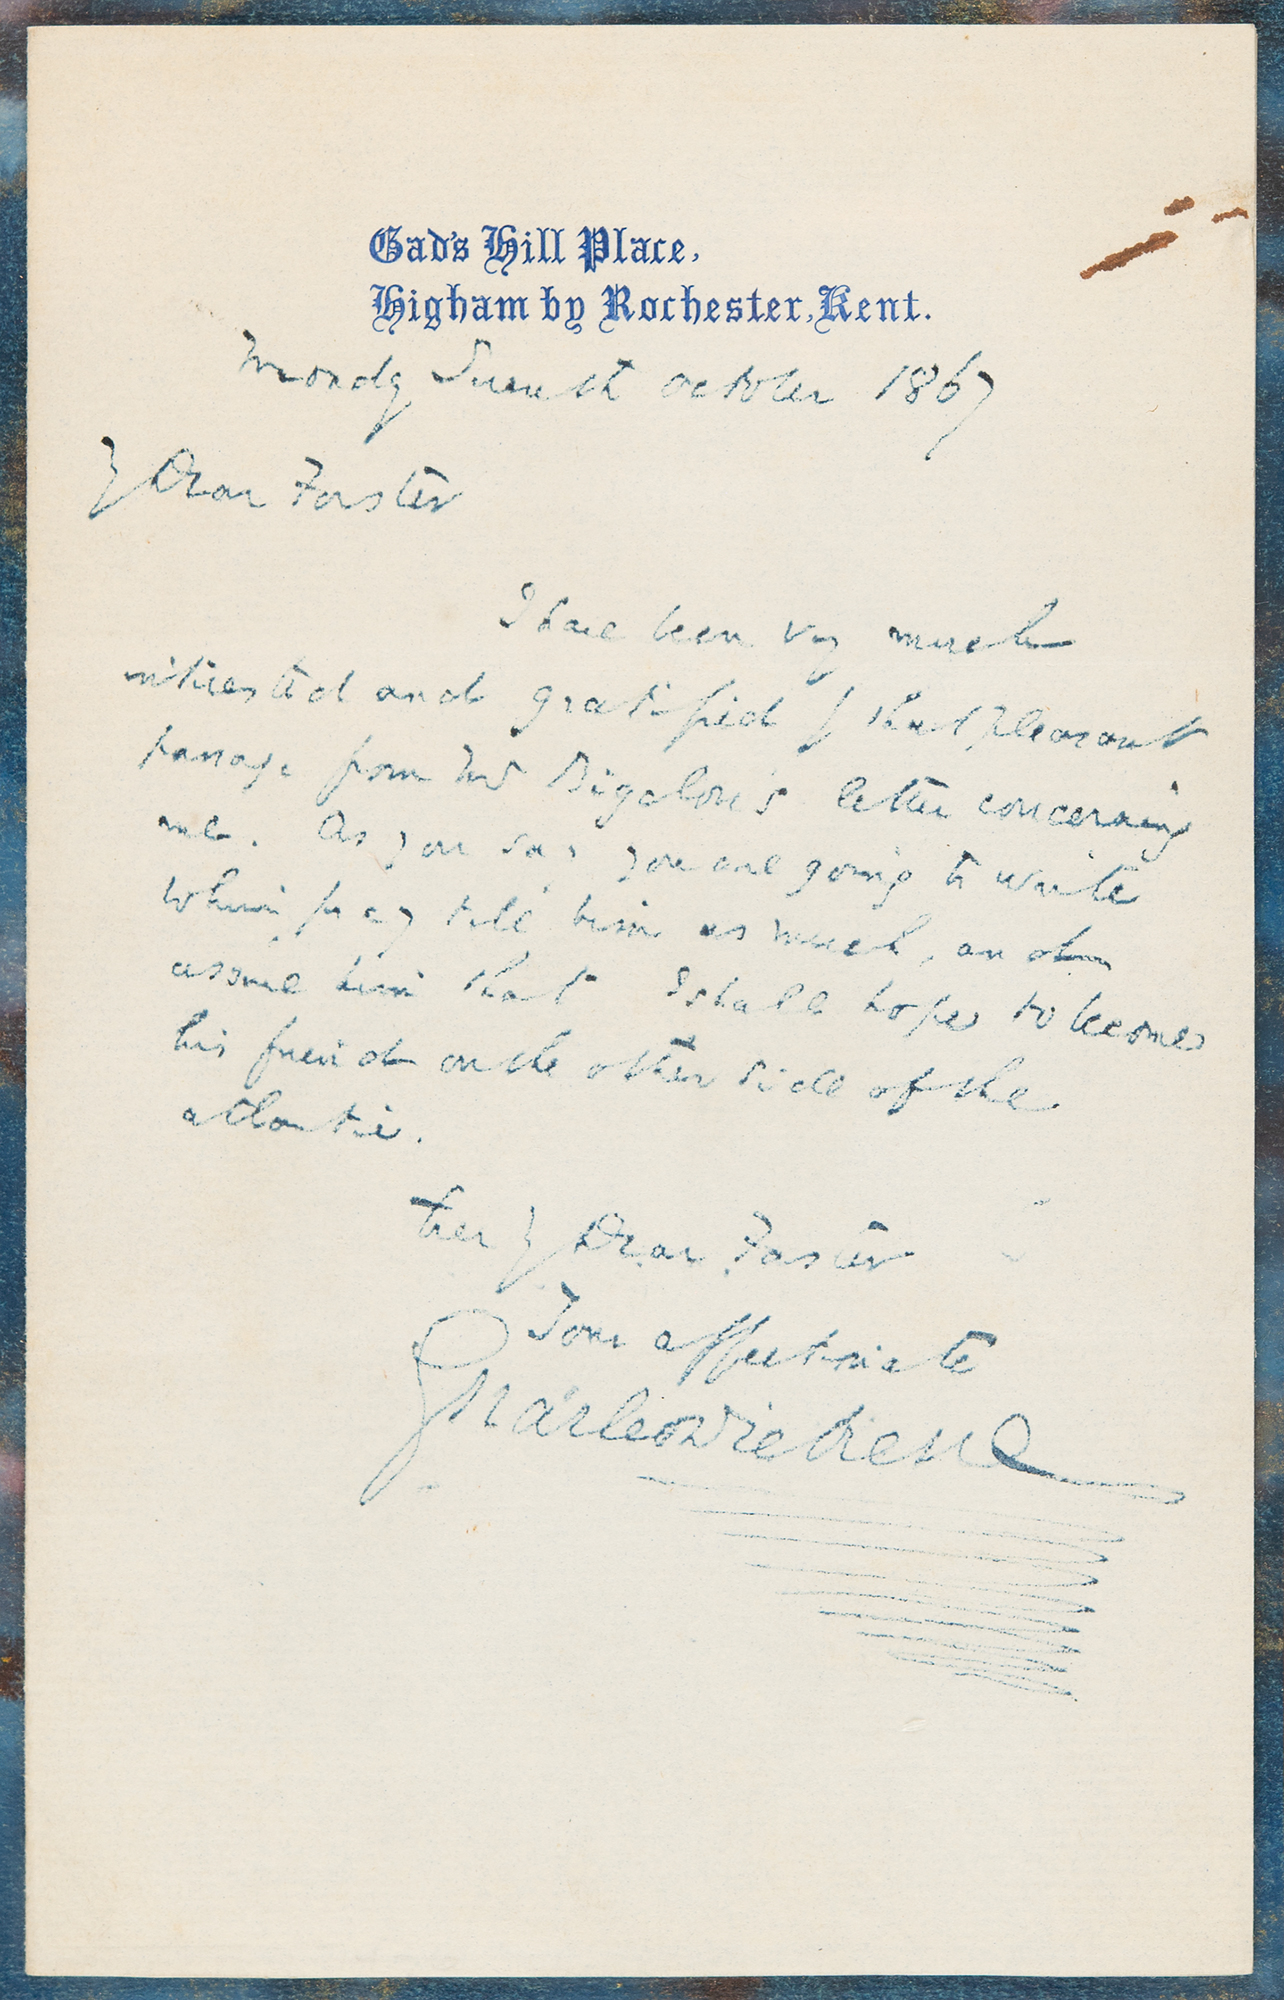 Gad's Hill Place,
Higham by Rochester, Kent.
Monday Seventh October 1867
My Dear Forster
I have been very much
interested and gratified by that pleasant
passage from Mr Bigelow's letter concerning
me. As you say you are going to write
to him pray tell him as much, and
assure him that I shall hope to become
his friend on the other side of the
Atlantic.
Ever My Dear Forster
Your affectionate
Charles Dickens